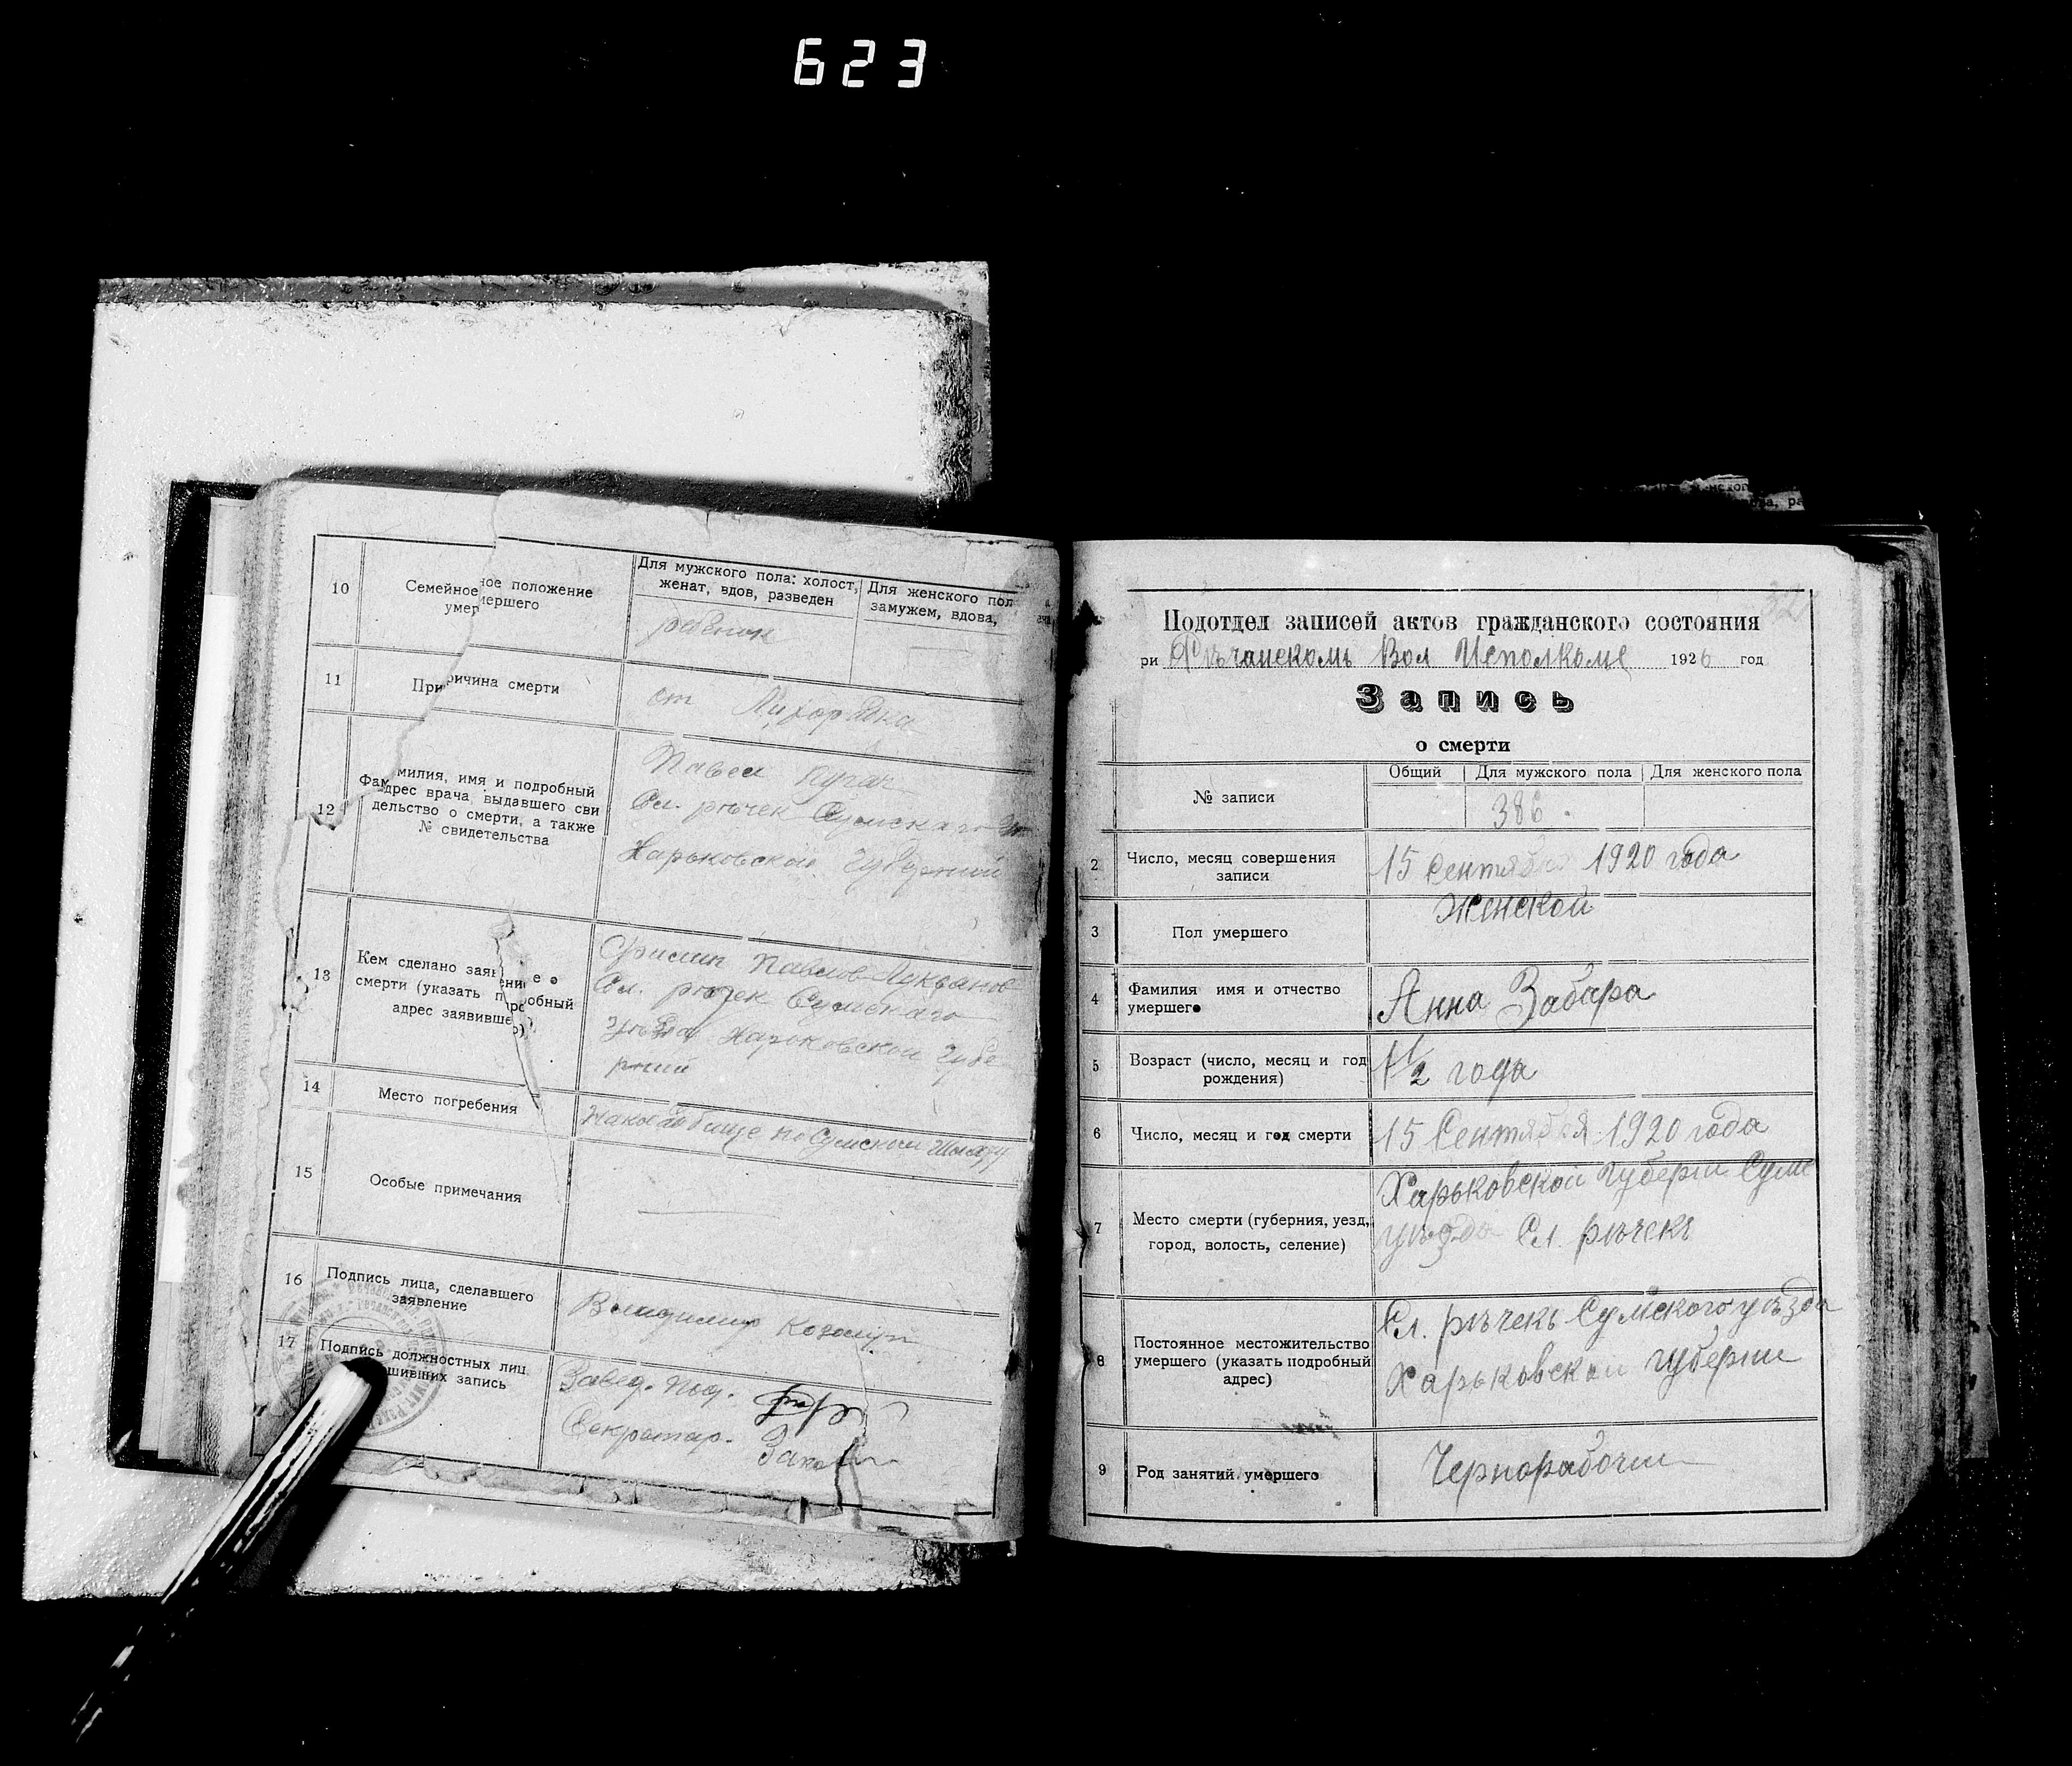 623
10
Семейное положение
умершего
Для мужского пола: холост,
женат, вдов, разведен
Для женского пол
замужем, вдова,
ребенок
11
Причина смерти
от Лихорадка
12
Фамилия, имя и подробный
адрес врача, выдавшего сви
дельство о смерти, а также
№ свидетельства
Павел Пугач
Сл. рѣчек Сумскаго
Харьковской Губерний
13
Кем сделано заявление о
смерти (указать подробный
адрес заявившего)
Павлов
Сл. речек Сумскаго
уѣзда Харьковской Губе
рний
14
Место погребения
на кладбище по Сумскому Шляху
15
Особые примечания
16
Подпись лица, сделавшего
заявление
Владимир
17
Подпись должностных лиц
шивших запись
Завед. Под.
Секретар.
Подотдел записей актов гражданского состояния
ри Рѣчанскомъ Вол Исполкоме 1920 год
Запись
о смерти
№ записи
Общий
Для мужского пола
Для женского пола
386.
2
Число, месяц совершения
записи
15 Сентября 1920 года
3
Пол умершего
Женской
4
Фамилия имя и отчество
умершего
Анна Забара
5
Возраст (число, месяц и год
рождения)
1 1/2 года
6
Число, месяц и год смерти
15 Сентября 1920 года
7
Место смерти (губерния, уезд,
город, волость, селение)
Харьковской Губерни Сумс
уѣзда Сл. рѣчекъ
8
Постоянное местожительство
умершего (указать подробный
адрес)
Сл. рѣчекъ Сумского уѣзда
Харьковской губерни
9
Род занятий умершего
Чернорабочи